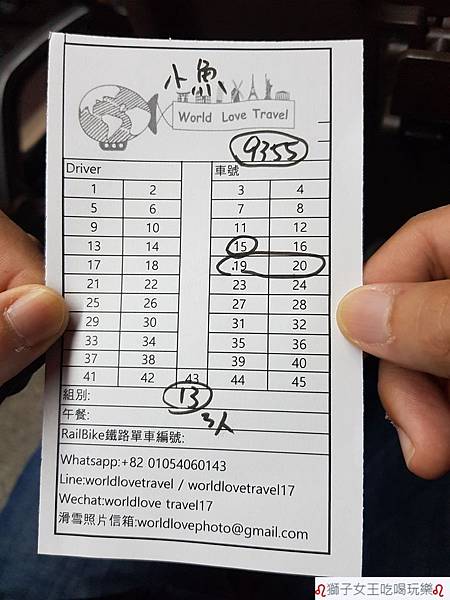 小魚
World Love Travel
9355
Driver 車號
1 2 3 4
5 6 7 8
9 10 11 12
13 14 15 16
17 18 19 20
21 22 23 24
25 26 27 28
29 30 31 32
33 34 35 36
37 38 39 40
41 42 43 44 45
組別: 13
午餐: 3人
RailBike鐵路單車編號:
Whatsapp:+82 01054060143
Line:worldlovetravel / worldlovetravel17
Wechat:worldlove travel17
滑雪照片信箱:worldlovephoto@gmail.com
獅子女王吃喝玩樂